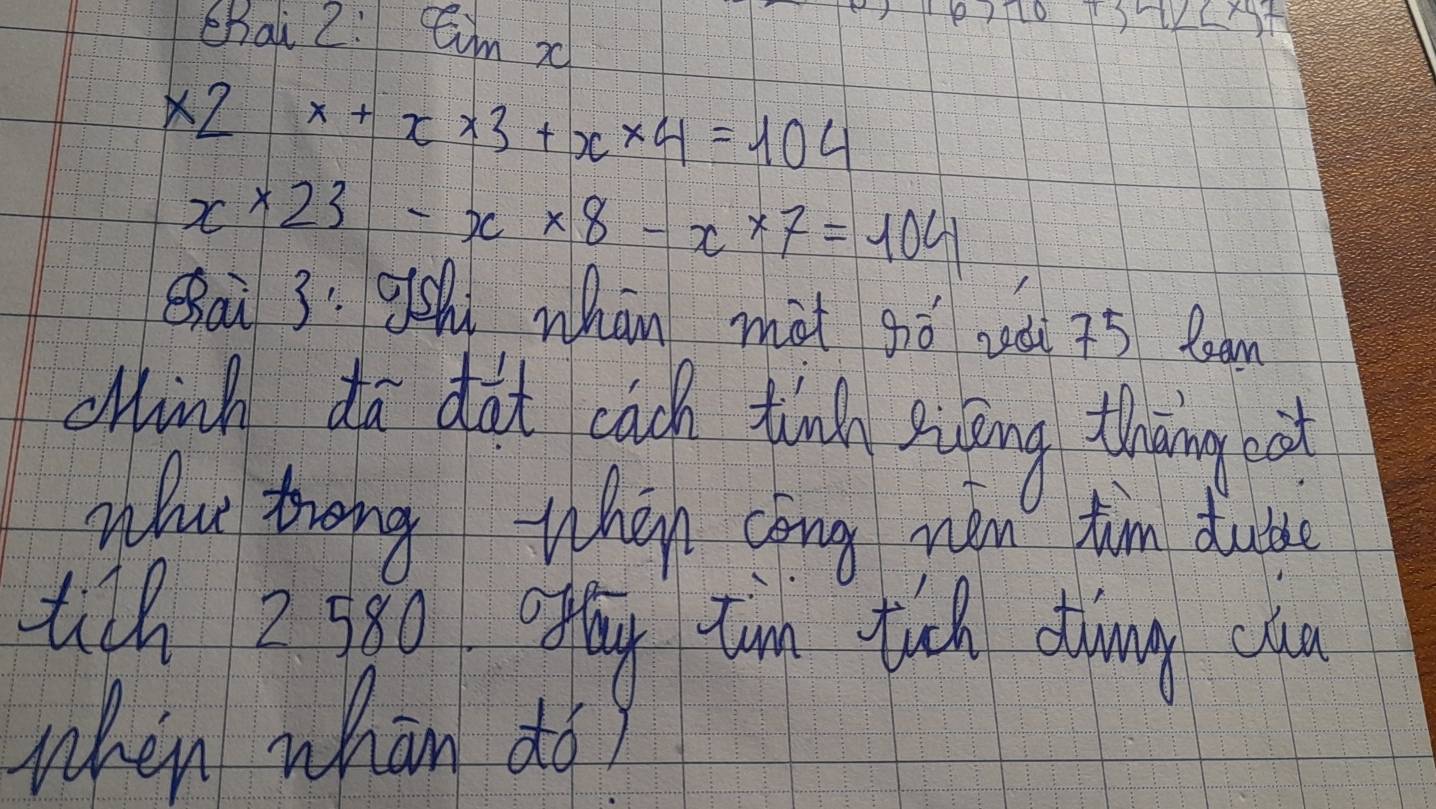 Bài 2: Tìm x
×2 x + x ×3 + x × 4 = 104
x × 23 - x × 8 - x × 7 = 104
Bài 3: Khi nhân một số với 75 bạn
Minh đã đặt cách tính riêng thẳng cột
như trong phép cộng nên tìm được
tích 2 580. Hãy tìm tích đúng của
phép nhân đó!